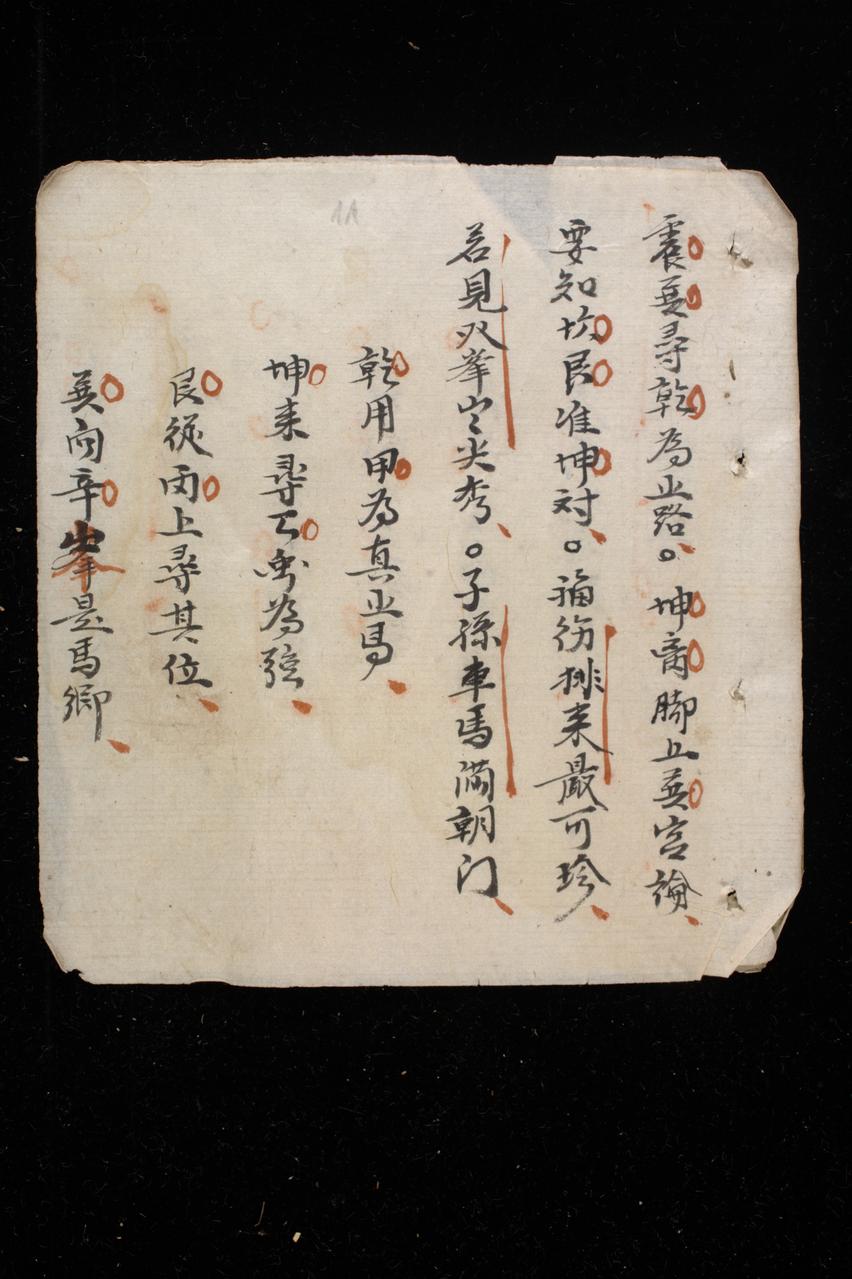 震巽尋乾為正路。坤离脚上巽宮論
要知坎艮准坤対。福仂排来最可珍
若見双峯出尖秀。子孫車馬滿朝门
乾用甲為真正馬
坤来尋乙為強
艮從丙上尋其位
巽向辛峯是馬鄉